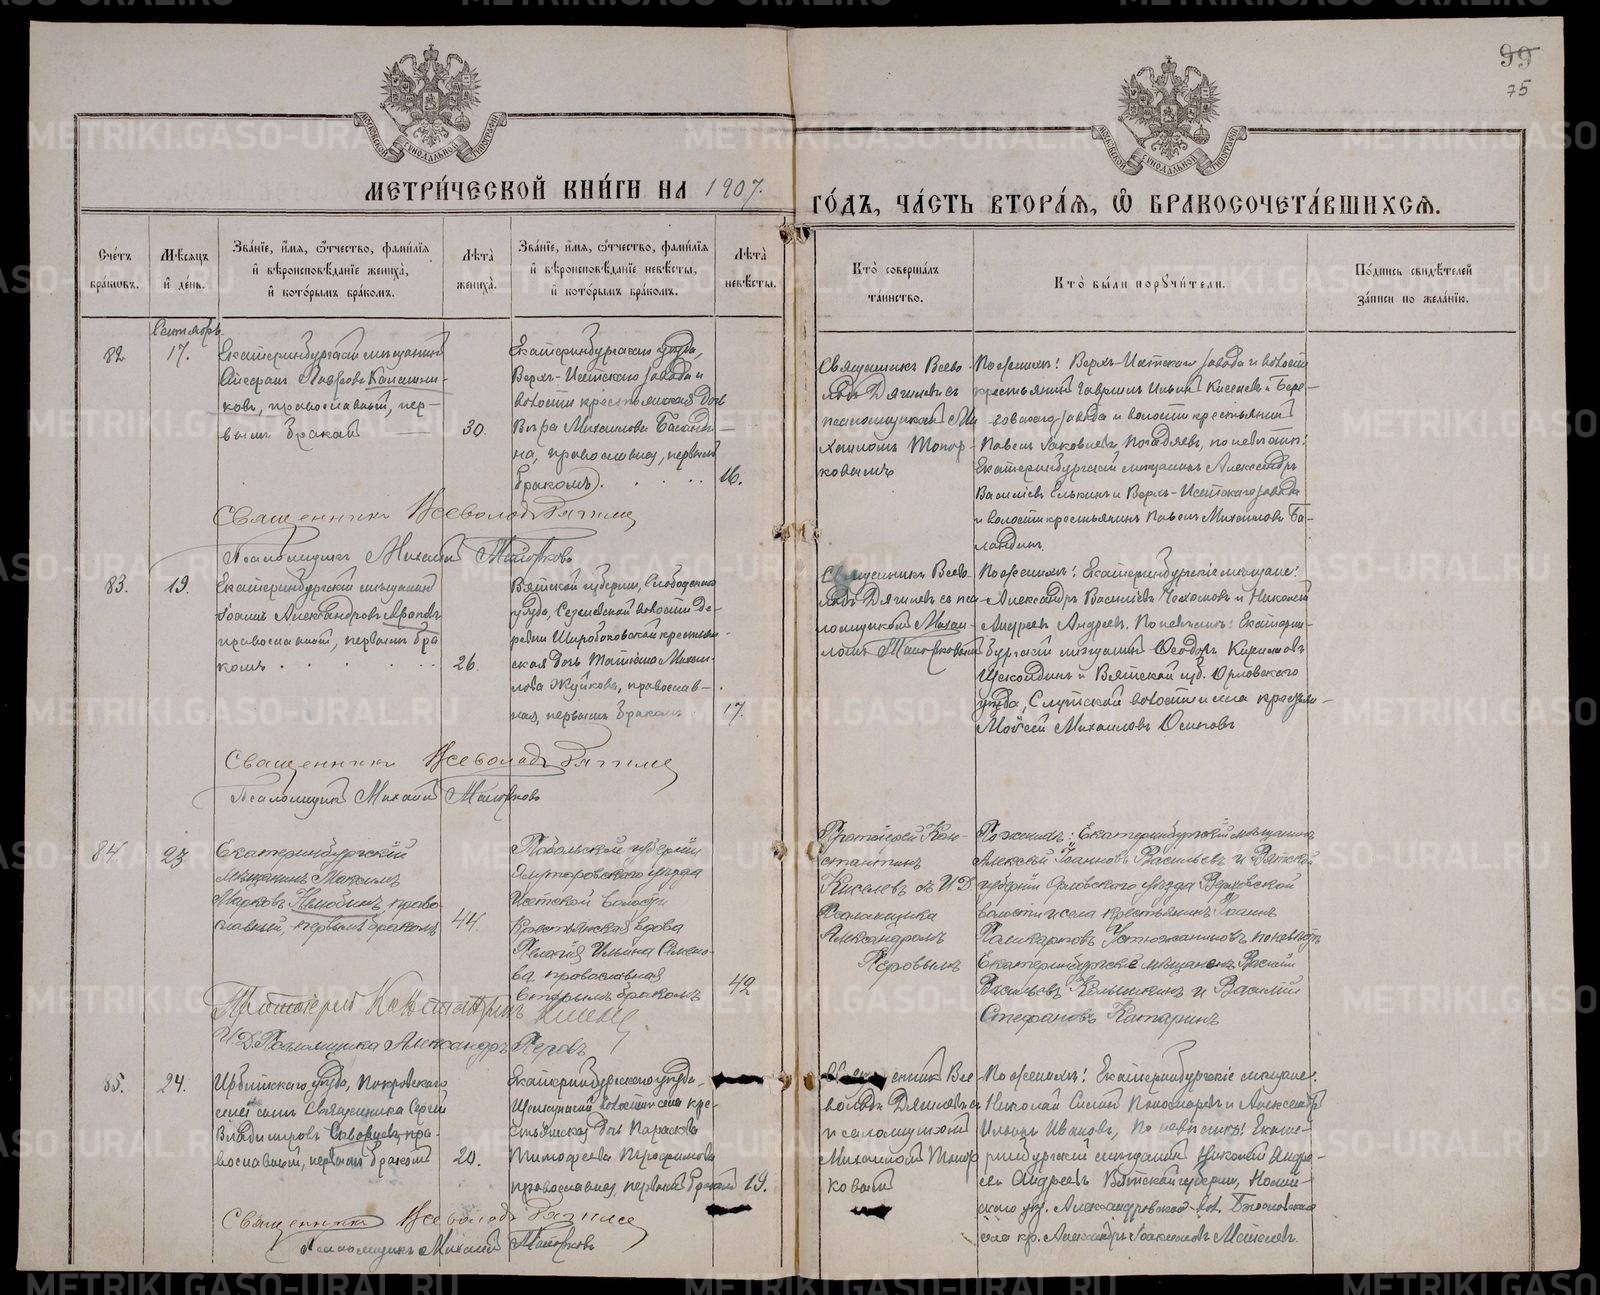 99
75
МОСКОВСКОЙ СИНОДАЛЬНОЙ ТИПОГРАФІИ
МОСКОВСКОЙ СИНОДАЛЬНОЙ ТИПОГРАФІИ
МЕТРИ́ЧЕСКОЙ КНИ́ГИ НА 1907.
ГО́ДЪ, ЧА́СТЬ ВТОРА́Ѧ, Ѽ БРАКОСОЧЕТА́ВШИХСѦ.
Сче́тъ бра́ковъ.
Мѣ́сяцъ и҆ де́нь.
Зва́нїе, и҆́мя, ѻ҆́тчество, фами́лїя и҆ вѣроисповѣ́данїе жениха̀, и҆ кото́рымъ бра́комъ.
Лѣ́та жениха̀.
Зва́нїе, и҆́мя, ѻ҆́тчество, фами́лїя и҆ вѣроисповѣ́данїе невѣ́сты, и҆ кото́рымъ бра́комъ.
Лѣ́та невѣ́сты.
Кто̀ соверша́лъ та́инство.
Кто̀ бы́ли порꙋчи́тели.
По́дпись свидѣ́телей за́писи по жела́нїю.
Сентябрь
82
17.
Екатеринбургскій мѣщанинъ
Лавровъ Калашни-
ковъ, православный, пер-
вымъ бракомъ
30.
Екатеринбургскаго уѣзда,
Верхъ-Исетскаго завода и
волости крестьянская дочь
Вѣра Михаилова Баланди-
на, православная, первымъ
бракомъ
16.
Священникъ Всево-
лодъ Дягилевъ съ
псаломщикомъ Ми-
хаиломъ Топор-
ковымъ
По женихѣ: Верхъ-Исетскаго завода и волости
крестьянинъ Гавріилъ Ильинъ Киселевъ и Бере-
зовскаго завода и волости крестьянинъ
Павелъ Іаковлевъ по невѣстѣ:
Екатеринбургскій мѣщанинъ Александръ
Василіевъ Елькинъ и Верхъ-Исетскаго завода
и волости крестьянинъ Павелъ Михаиловъ Ба-
ландинъ.
Священникъ Всеволодъ Дягилевъ
Псаломщикъ Михаилъ Топорковъ
83.
19.
Екатеринбургскій мѣщанинъ
Іоаннъ Александровъ
православный, первымъ бра-
комъ
26.
Вятской губерніи, Слободскаго
уѣзда, волости де-
ревни Широбоковской крестьян-
ская дочь Татіана Михаи-
лова Жуйкова, православ-
ная, первымъ бракомъ
17.
Священникъ Всево-
лодъ Дягилевъ съ пса-
ломщикомъ Михаи-
ломъ Топорковымъ
По женихѣ: Екатеринбургскіе мѣщане:
Александръ Василіевъ и Николай
Андреевъ Андреевъ. По невѣстѣ: Екатерин-
бургскій мѣщанинъ Ѳеодоръ Кирилловъ
и Вятской губ. Орловскаго
уѣзда, волости и села крестьян.
Моѵсей Михаиловъ Осиповъ
Священникъ Всеволодъ Дягилевъ
Псаломщикъ Михаилъ Топорковъ
84
23
Екатеринбургскій
мѣщанинъ Максимъ
Марковъ Нелюбинъ, право-
славный, первымъ бракомъ
44.
Тобольской губерніи
Ялуторовскаго уѣзда
Исетской волости
Крестьянская вдова
Пелагія Ильина Семено-
ва, православная
вторымъ бракомъ
42
Протоіерей Кон-
стантинъ
Киселевъ съ И.Д.
Псаломщика
Александромъ
Перовымъ
По женихѣ: Екатеринбургскій мѣщанинъ
Алексѣй Іоанновъ Васильевъ и Вятской
губерніи Орловскаго уѣзда Верховской
волости и села крестьянинъ Іоаннъ
Поликарповъ Устюжаниновъ по невѣстѣ
Екатеринбургскіе мѣщане Василій
Васильевъ и Василій
Стефановъ Катаринъ
Протоіерей Константинъ Киселевъ
И.Д. Псаломщика Александръ Перовъ
85.
24.
Ирбитскаго уѣзда, Покровскаго
села сынъ Священника Сергѣй
Владиміровъ пра-
вославный, первымъ бракомъ
20.
Екатеринбургскаго уѣзда,
волости и села кре-
стьянская дочь Параскева
Тимофеева Перфильева
православная, первымъ бракомъ
19.
Священникъ Все-
володъ Дягилевъ съ
псаломщикомъ
Михаиломъ Топор-
ковымъ
По женихѣ: Екатеринбургскіе мѣщане:
Николай Пономаревъ и Александръ
Ильинъ Ивановъ, по невѣстѣ: Екате-
ринбургскій мѣщанинъ Николай Андре-
евъ Андреевъ Вятской губерніи, Нолин-
скаго уѣз. Александровской вол. Богословскаго
села кр. Александръ
Священникъ Всеволодъ Дягилевъ
Псаломщикъ Михаилъ Топорковъ
METRIKI.GASO-URAL.RU